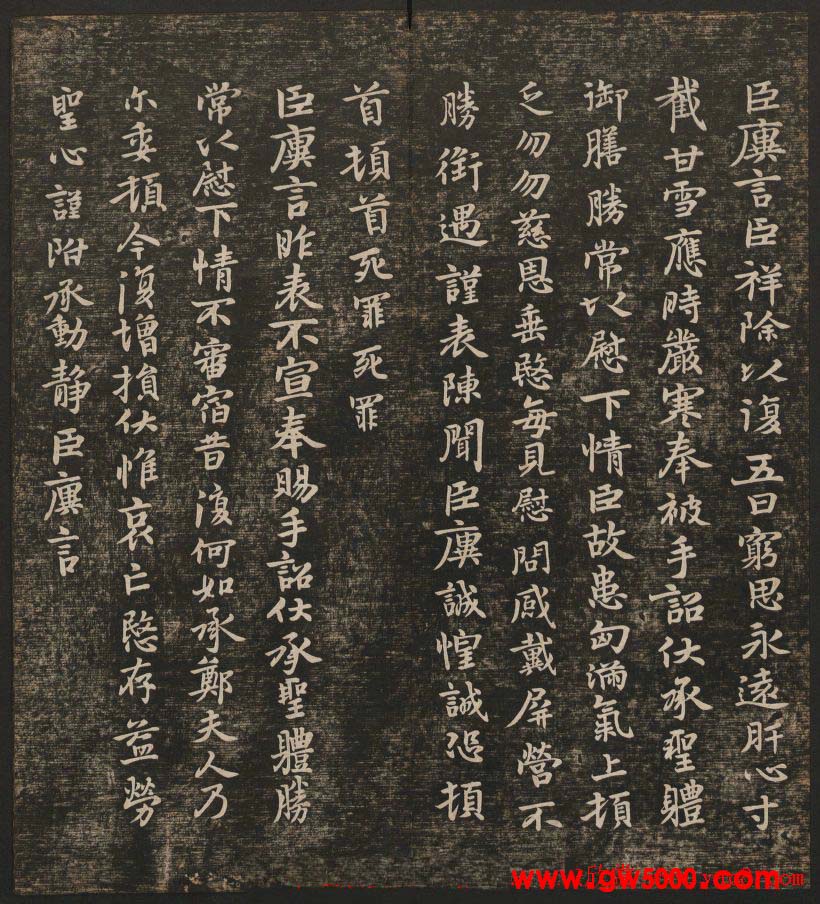 臣廙言臣祥除以復五日窮思永遠肝心寸
截甘雪應時嚴寒奉被手詔伏承聖體
御膳勝常以慰下情臣故患匈滿氣上頓
乏勿勿慈恩垂愍每見慰問感戴屏營不
勝銜遇謹表陳聞臣廙誠惶誠恐頓
首頓首死罪死罪
臣廙言昨表不宣奉賜手詔伏承聖體勝
常以慰下情不審宿昔復何如承鄭夫人乃
尒委頓今復增損伏惟哀亡愍存益勞
聖心謹附承動静臣廙言
www.gw5000.com